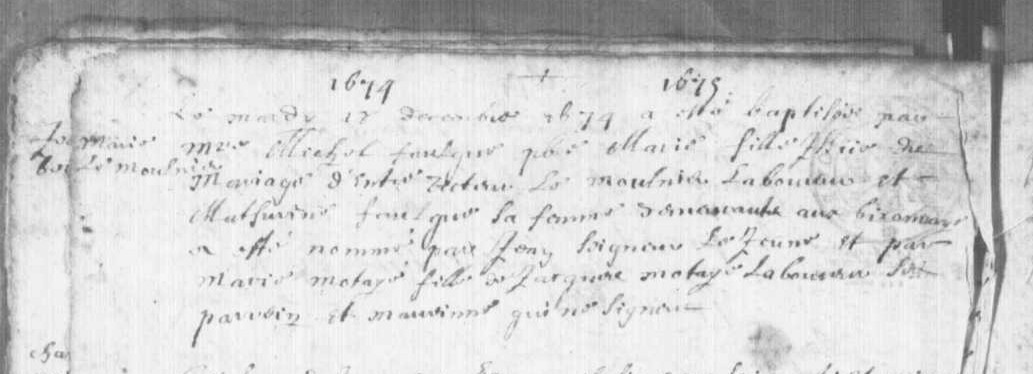 1674 + 1675
Le mardy 17 decembre 1674 a esté baptisée par
mre Michel foulque pbre Marie fille Issue du
Marie
Le moulnier
Mariage d'Entre Le moulnier Laboureur et
Mathurine foulque sa femme demeurante aux
a esté nommé par Jean Seigneur Le Jeune et par
Marie motayé fille de Jacques motayé Laboureur Ses
parrein et marinne qui ne signent
cha